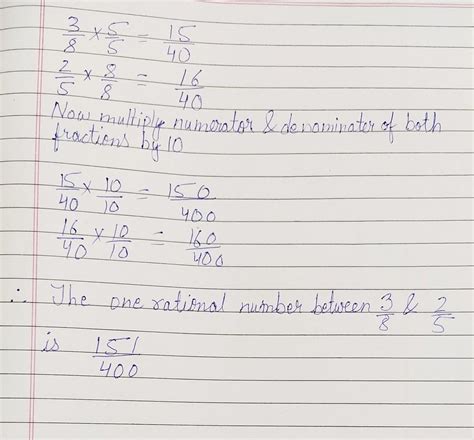 3/8 × 5/5 = 15/40
2/5 × 8/8 = 16/40
Now multiply numerator & denominater of both
fractions by 10
15/40 × 10/10 = 150/400
16/40 × 10/10 = 160/400
∴ The one rational number between 3/8 & 2/5
is 151/400